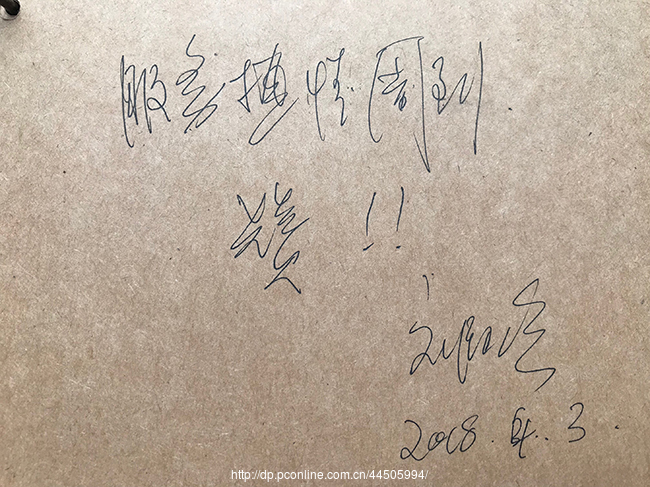 服务热情周到
赞!!
2018.4.3.
http://dp.pconline.com.cn/44505994/